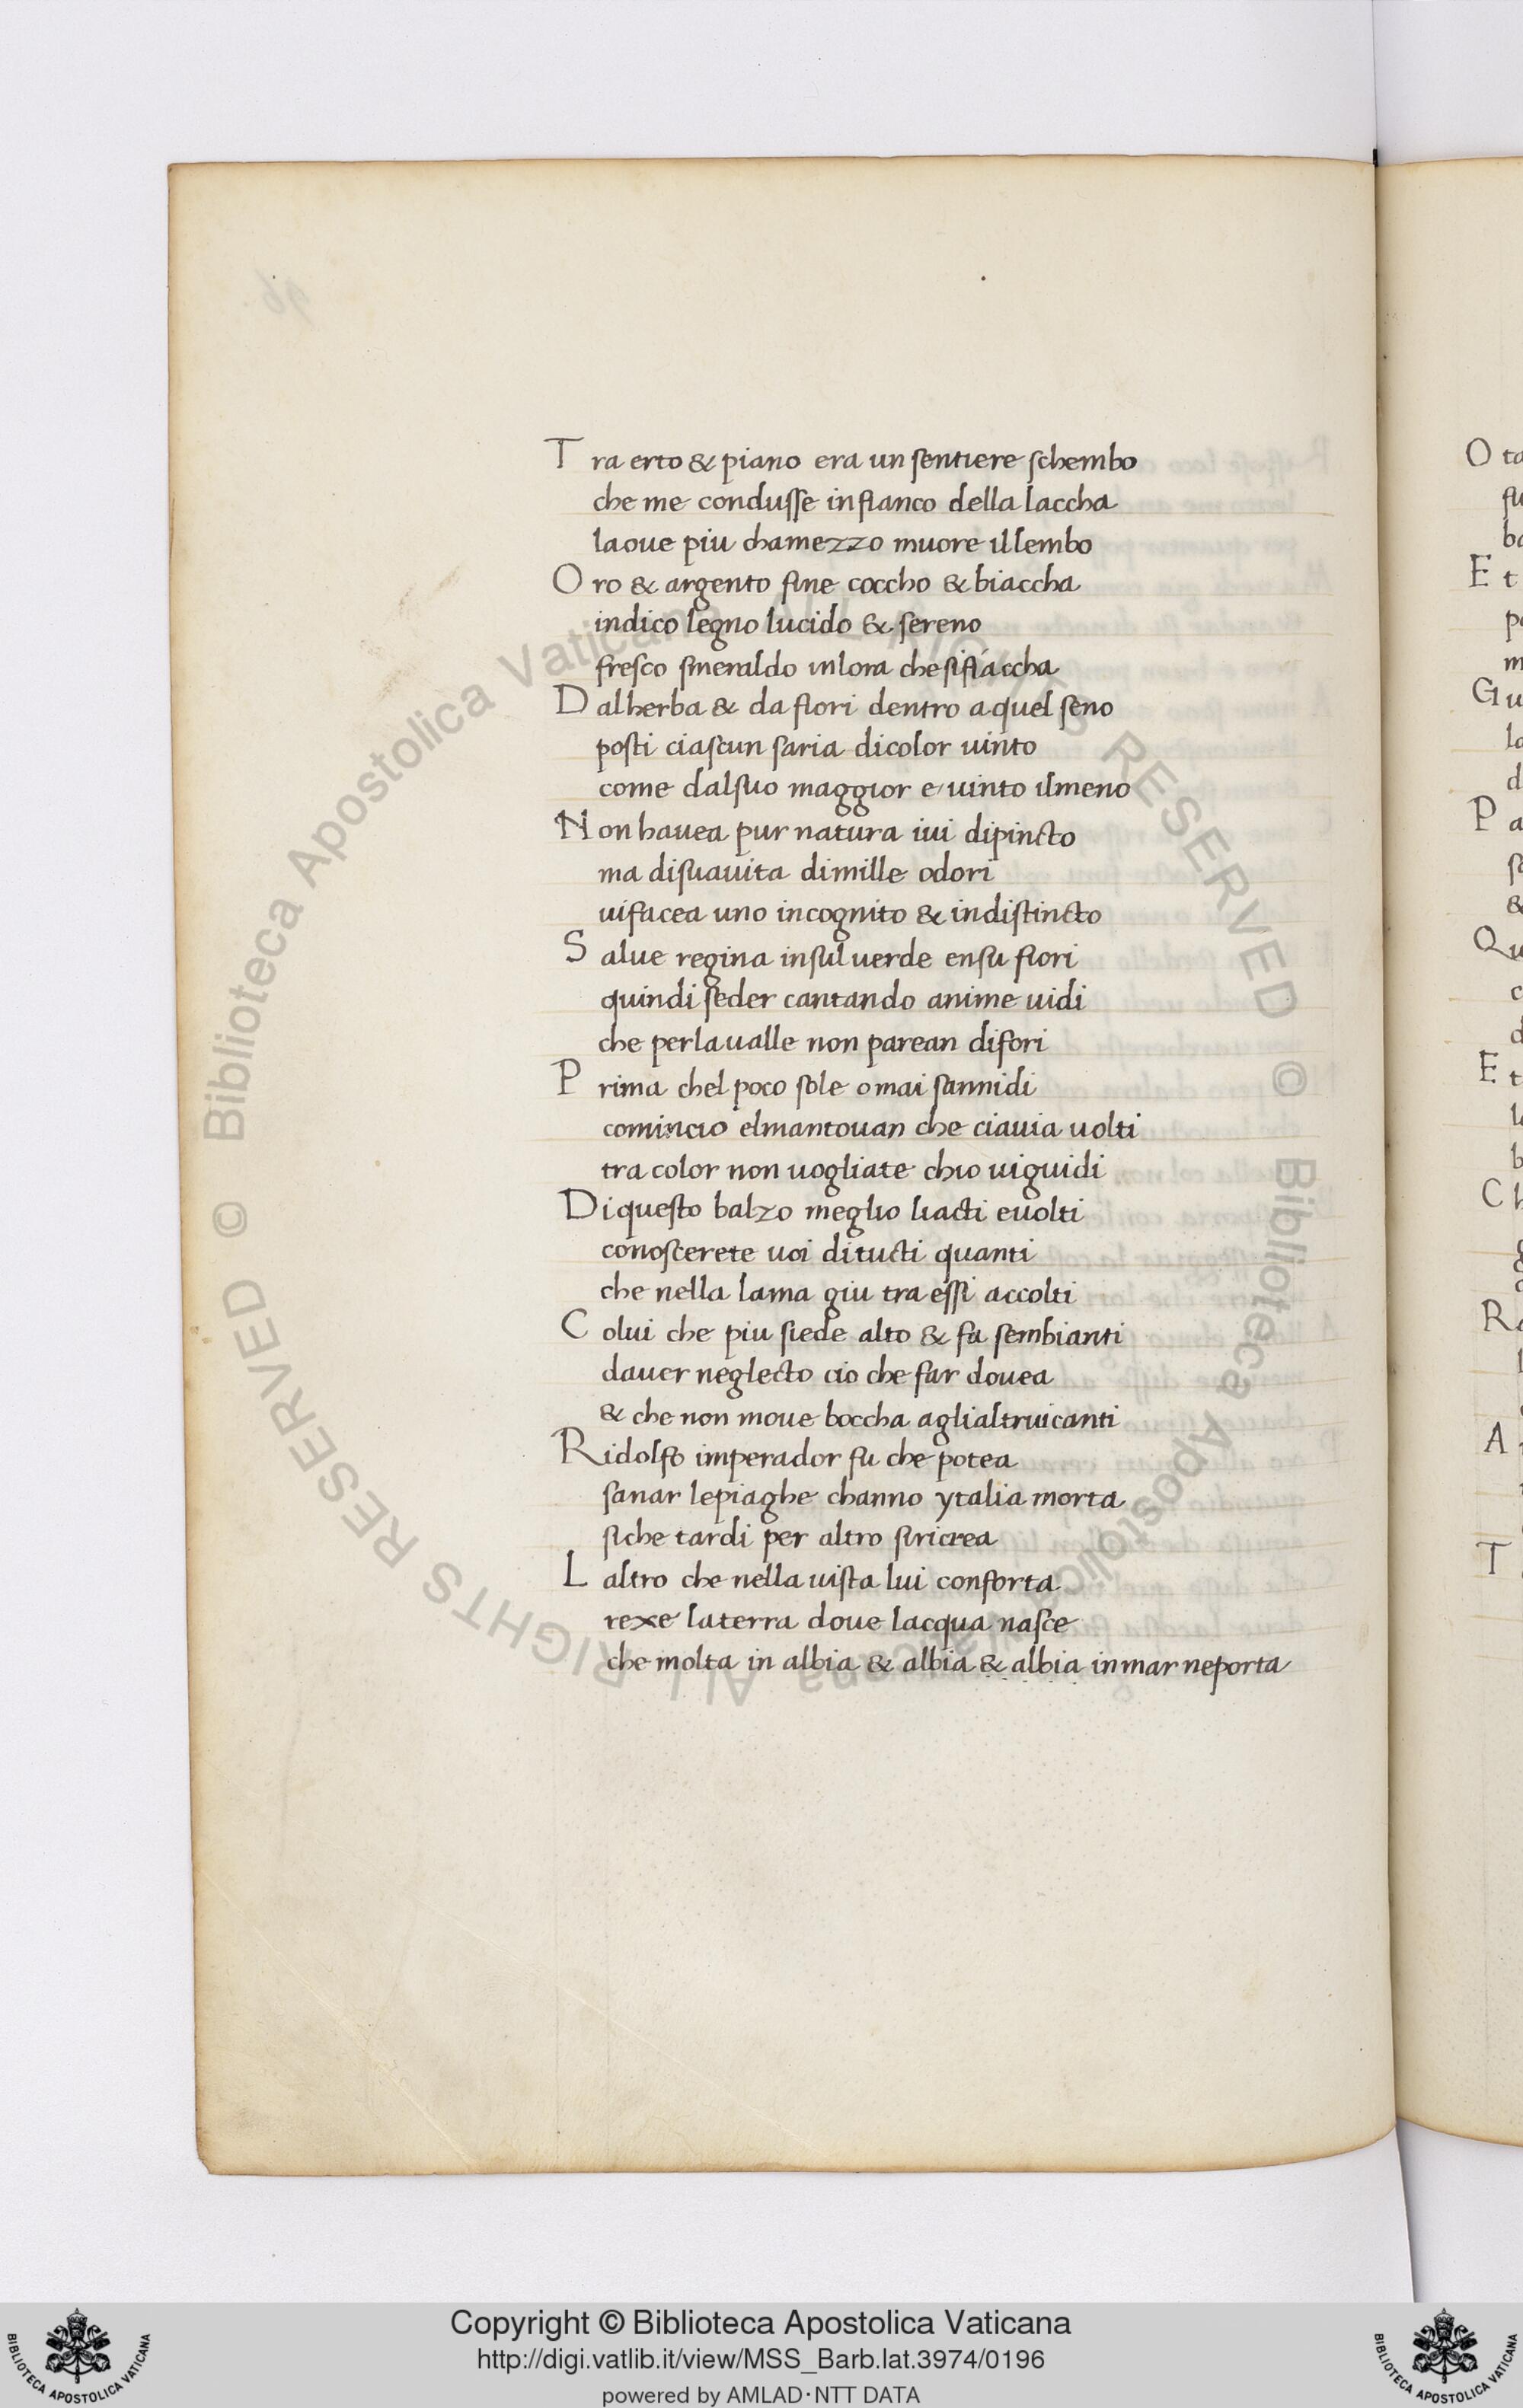 Tra erto & piano era un sentiere schembo
che me condusse infianco della laccha
laoue piu chamezzo muore illembo
Oro & argento fine coccho & biaccha
indico legno lucido & sereno
fresco smeraldo inlora chesifiaccha
Dalherba & da fiori dentro aquel seno
posti ciascun saria dicolor uinto
come dalsuo maggior e uinto ilmeno
Non hauea pur natura iui dipincto
ma disuauita dimille odori
uifacea uno incognito & indistincto
Salue regina insul uerde ensu fiori
quindi seder cantando anime uidi
che perlaualle non parean difori
Prima chel poco sole omai sannidi
comincio elmantouan che ciauia uolti
tra color non uogliate chio uiguidi
Diquesto balzo meglio liacti euolti
conoscerete uoi ditucti quanti
che nella lama giu tra essi accolti
Colui che piu siede alto & fa sembianti
dauer neglecto cio che far douea
& che non moue boccha aglialtruicanti
Ridolfo imperador fu che potea
sanar lepiaghe channo ytalia morta
siche tardi per altro siricrea
Laltro che nella uista lui conforta
rexe laterra doue lacqua nasce
che molta in albia & albia & albia inmar neporta
O
E t
Gi u
P a
Qu
E t
C h
R
A
T
© Biblioteca Apostolica Vaticana ALL RIGHTS RESERVED © Biblioteca Apostolica Vaticana ALL RIGHTS RESERVED
Copyright © Biblioteca Apostolica Vaticana
http://digi.vatlib.it/view/MSS_Barb.lat.3974/0196
powered by AMLAD·NTT DATA
BIBLIOTECA APOSTOLICA VATICANA
BIBLIOTECA APOSTOLICA VATICANA